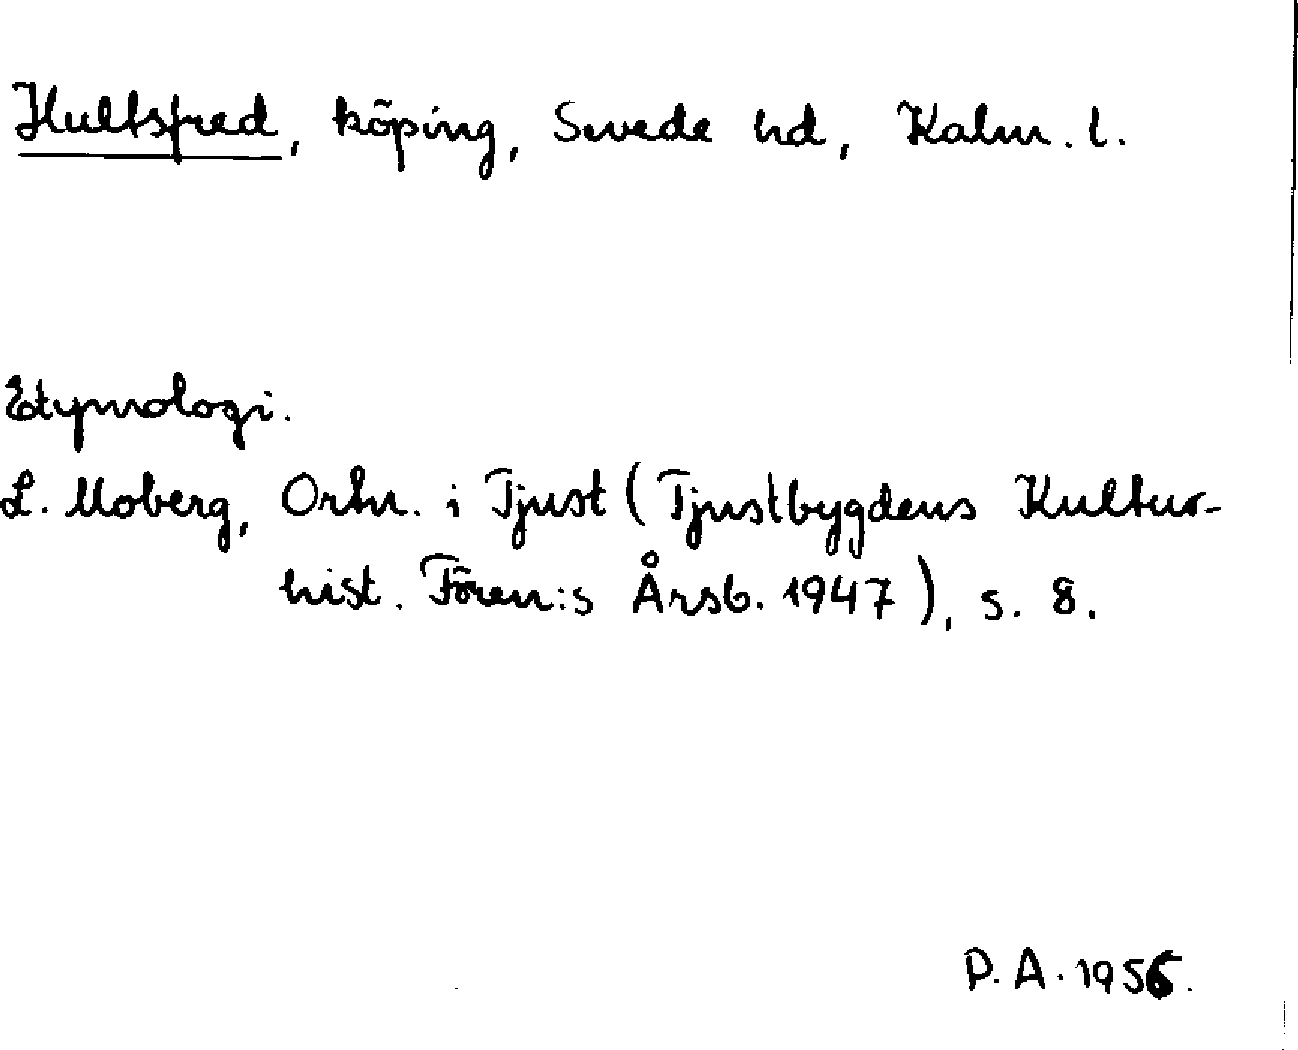 Hultsfred, köping, Sevede hd, Kalm. l.
Etymologi.
L. Moberg, Ortn. i Tjust (Tjustbygdens Kultur-
hist. Fören:s Årsb. 1947), s. 8.
P.A. 1956.